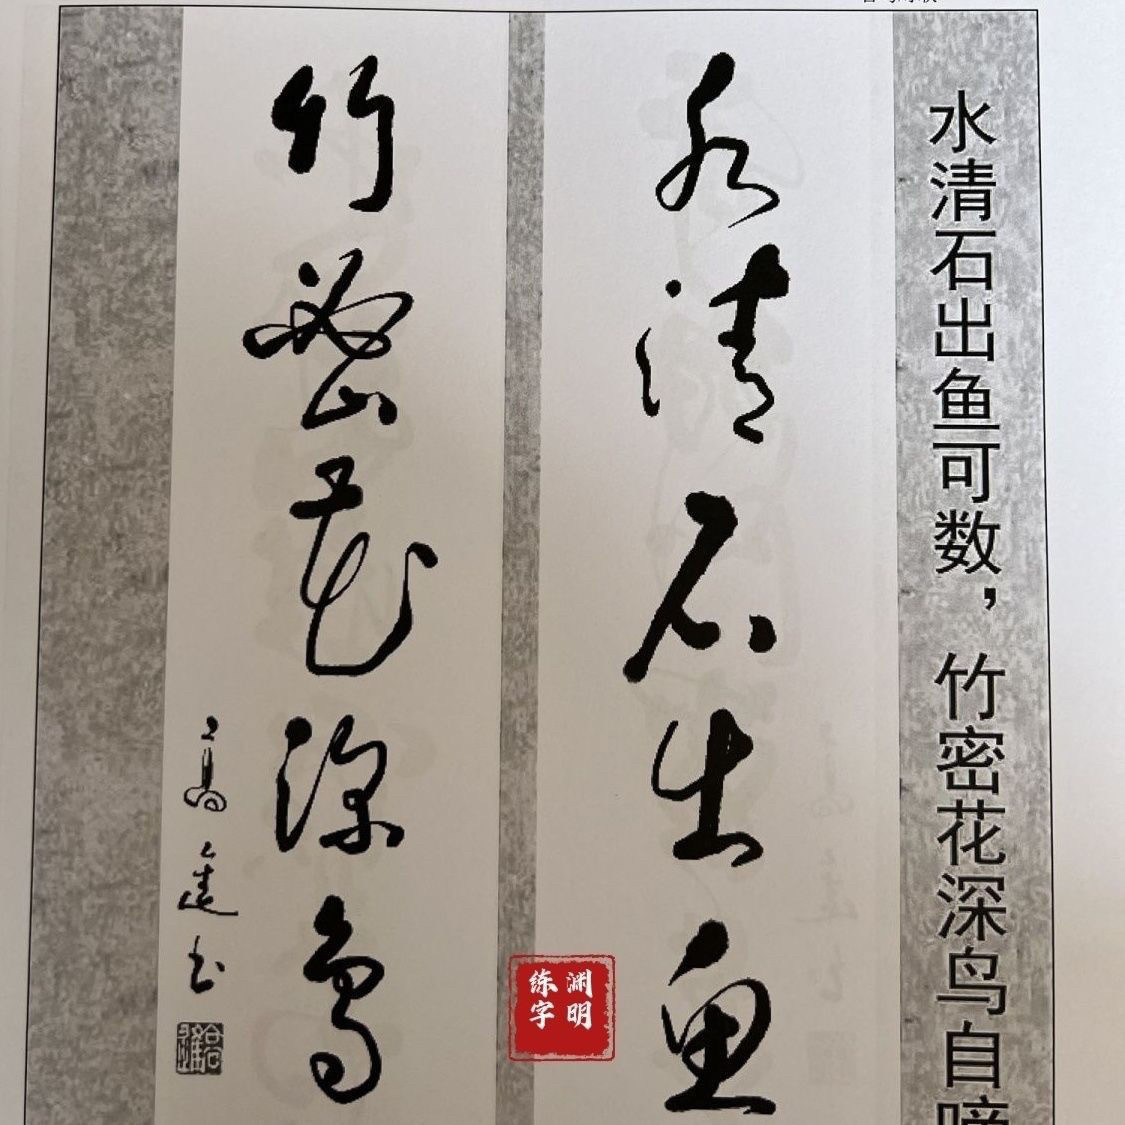 水清石出鱼可数，竹密花深鸟自啼
水清石出鱼
竹密花深鸟
高逢书
渊明
练字